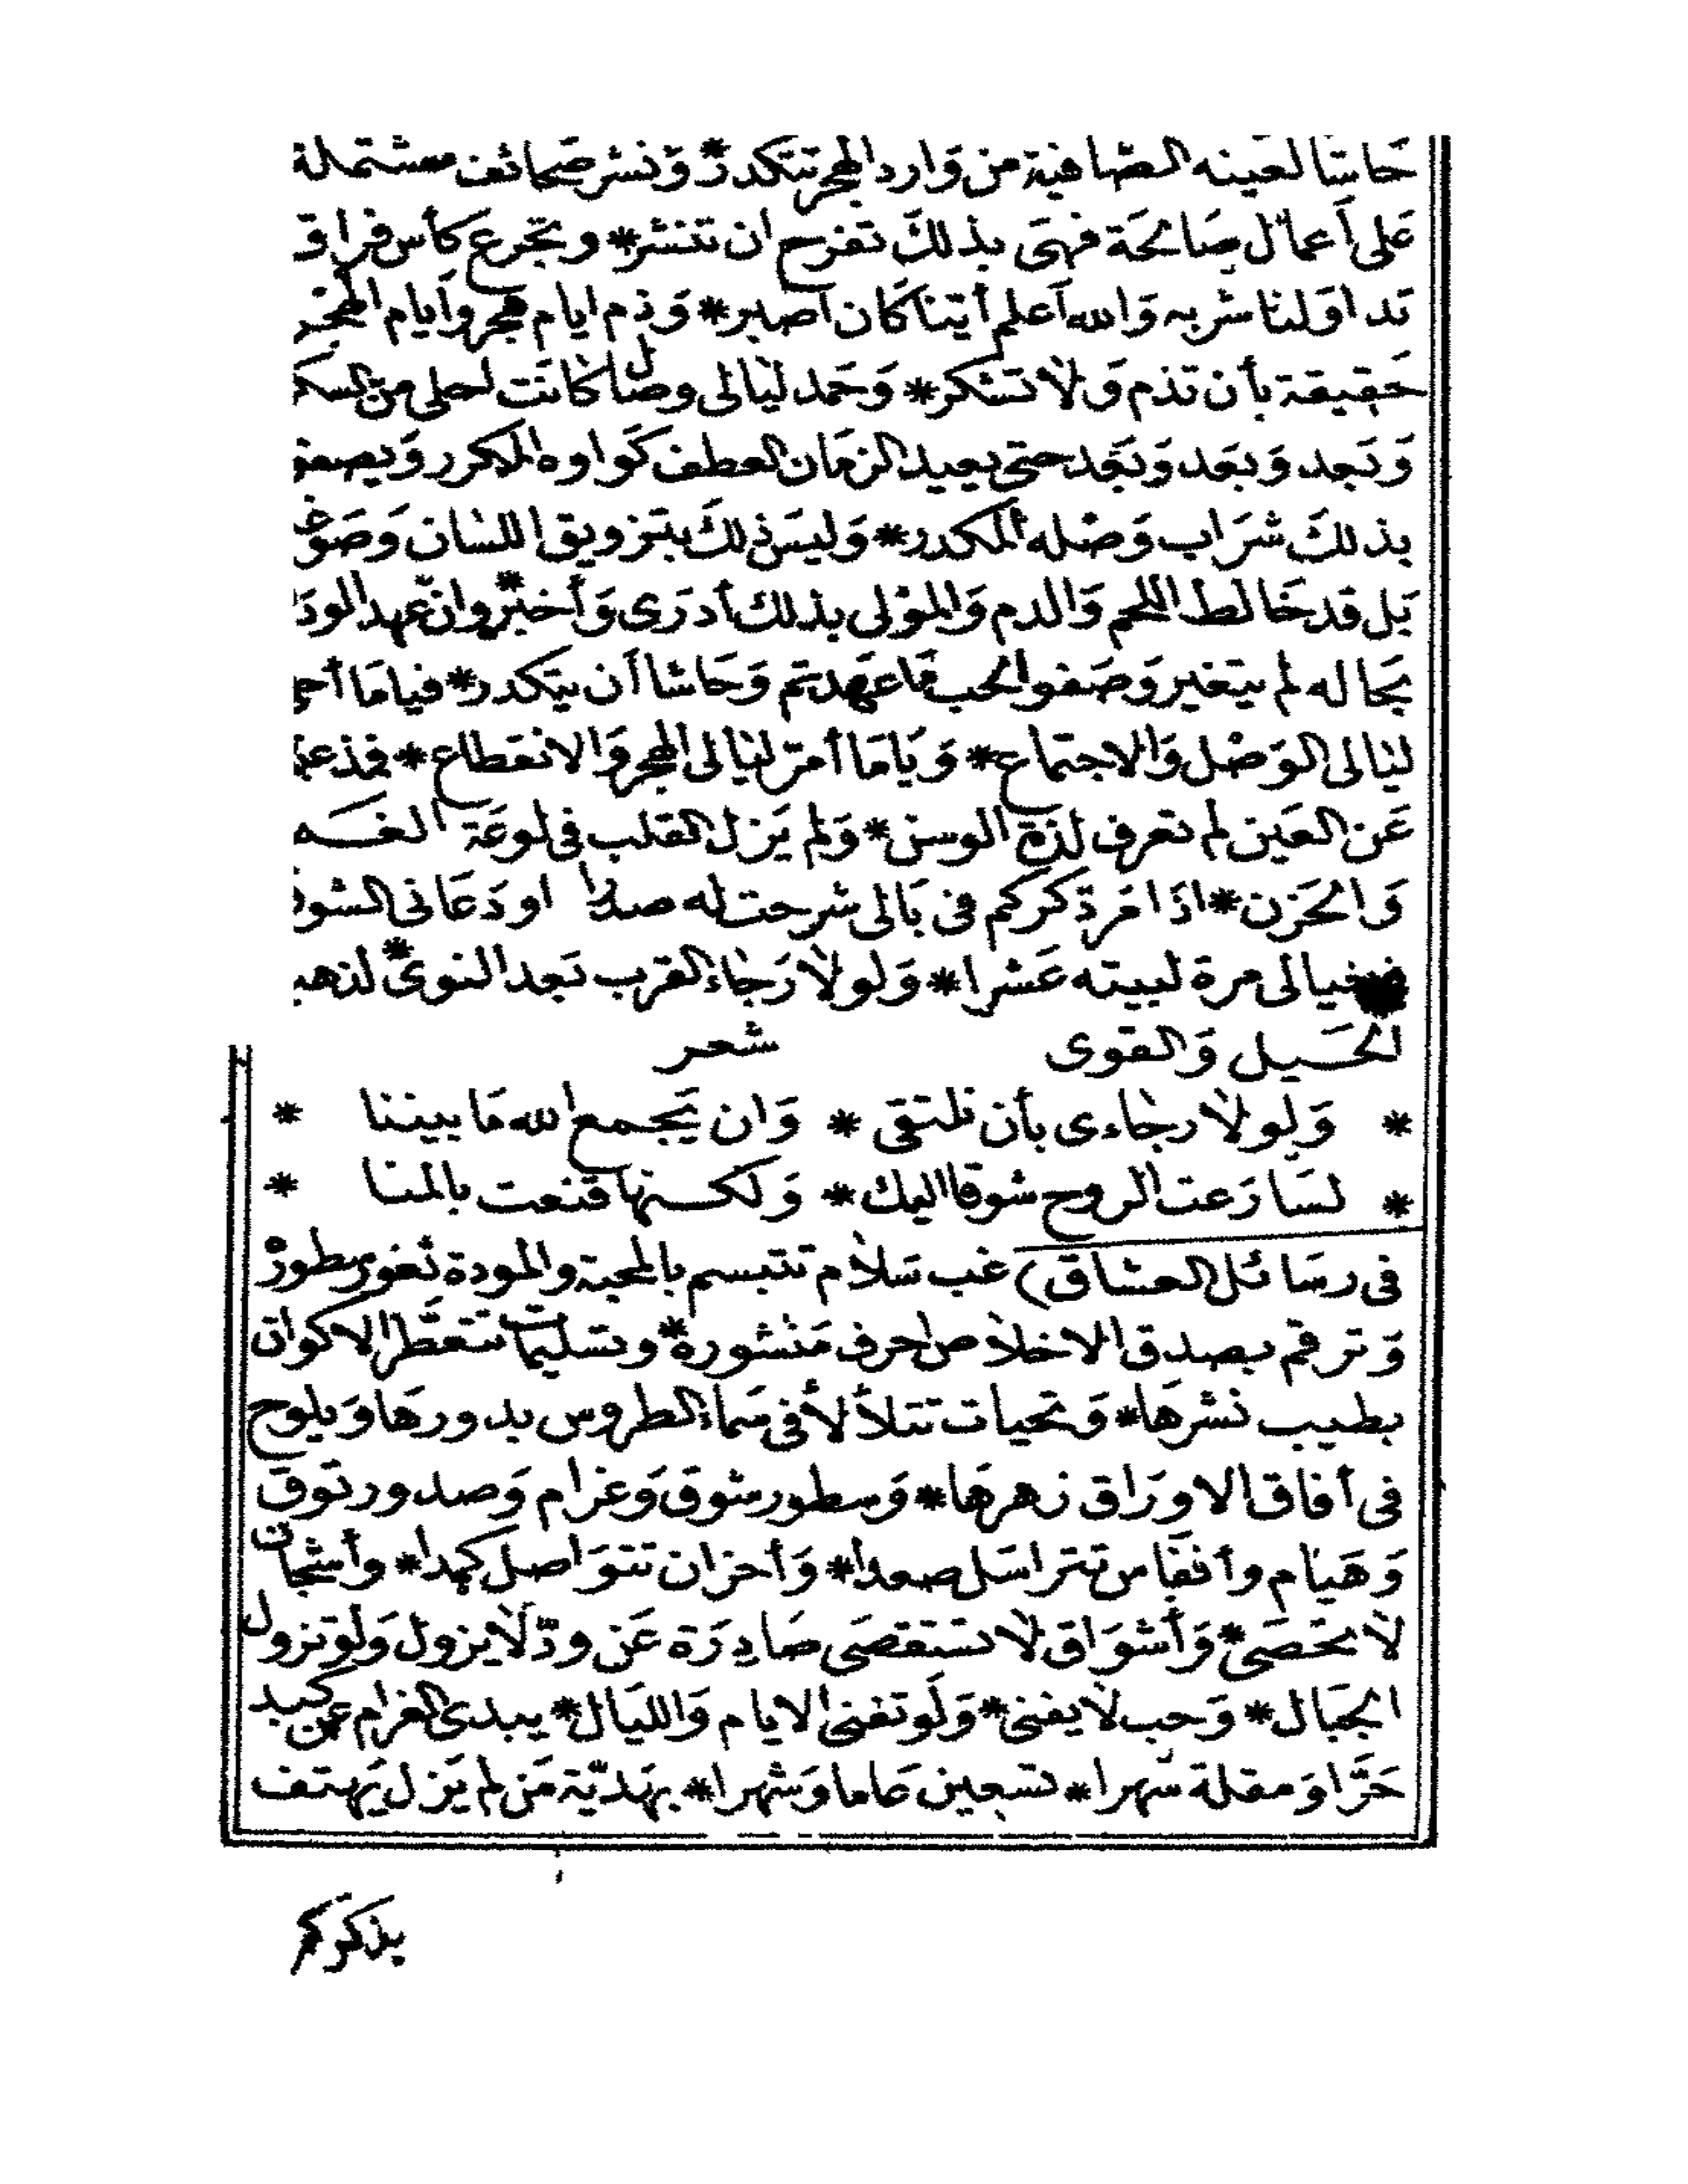 حَاشا لعينه الصَافية من وَارد الهجر تتكدر * وَنشر صَحائف مشتملة
عَلى أعمال صَالحَة فهىَ بذلكَ تفرح ان تنشر * وتجرع كأس فراق
تداوَلنا شربه وَالله أعلم أيّنا كَان اصبر * وَذم ايام هجر وأيام الهجر
حَقيقة بأن تذم وَلا تشكر * وَحمد ليَالى وصَال كانت احلى من السكر
وَنعد وَبعَد وَنعَد حتى يعيد الزمَان العطف كَواوه المكرر وَيصفو
بذلكَ شرَاب وَصْله المكدر * وَليسَ ذلكَ بتزويق اللسَان وَصَوْغ
بَل قد خَالط اللحم وَالدم وَالموْلى بذلك أدرَى وَأخبر * وان عهد الودَ
بحَاله لم يتغير وَصَفو الحب مَا عَهدتم وَحَاشا أن يتكدر * فيامَا أح
ليَالى الوَصْل وَالاجتماع * وَيَامَا أمرّ ليَالى الهجر وَالانقطاع *
عَن العَين لم تعرف لذة الوسن * وَلم يَزل القلب فى لوعَة الغـــم
وَالحَزن * اذَا مَر ذكركم فى بَالى شرحت له صدرا او دَعَانى الشوق
خيالى مرة لبيته عَشرا * وَلولا رَجَاء القرب بَعد النوى * لذهب
الحَـيل وَالقوى شعر
* وَلولا رجاءى بأن نلتقى * وَان يَجمع الله مَا بيننا *
* لسَارَعت الروح شوقا اليك * وَلكـــنها قنعت بالمنا *
فى رسَائل العشاق) غب سَلام تتبسم بالمحبة والمودة ثغور سطورْ
وَترقم بصدق الاخلاص احرف مَنشورة * وتسليمات تتعَطَّر الاكوان
بطيب نشرهَا * وَتحيات تتلألأ فى سَماء الطروس بدورهَا وَيلوح
فى أفاق الاورَاق زهرهَا * وَسطور شوق وَغرام وَصدور توق
وَهَيَام وأنفَاس تتراسَل صعدا * وَأحزان تتوَاصل كمدا * وأشجان
لا تحصَى * وَأشوَاق لا تستقصَى صَادِرَة عَن ودّ لا يزول وَلو تزول
الجبَال * وَحب لا يفنى * وَلَو تفنى الايام وَالليَال * يبدى الغرام عن كبد
حَرَّا وَمقلة سَهرا * تسعين عاما وَشهرا * بهَديّة مَن لم يَزل يَهتف
بذكركم